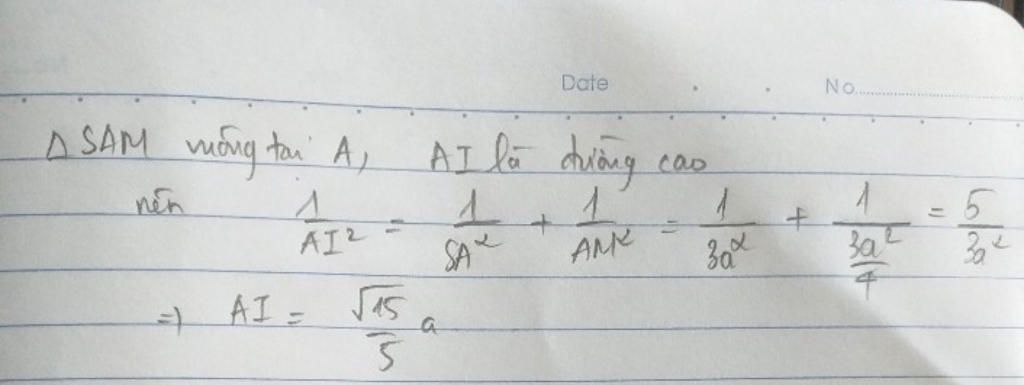 Date No
Δ SAM vuông tại A, AI là đường cao
nên 1/AI² = 1/SA² + 1/AM² = 1/3a² + 1/(3a²/4) = 5/3a²
=> AI = √15/5 a